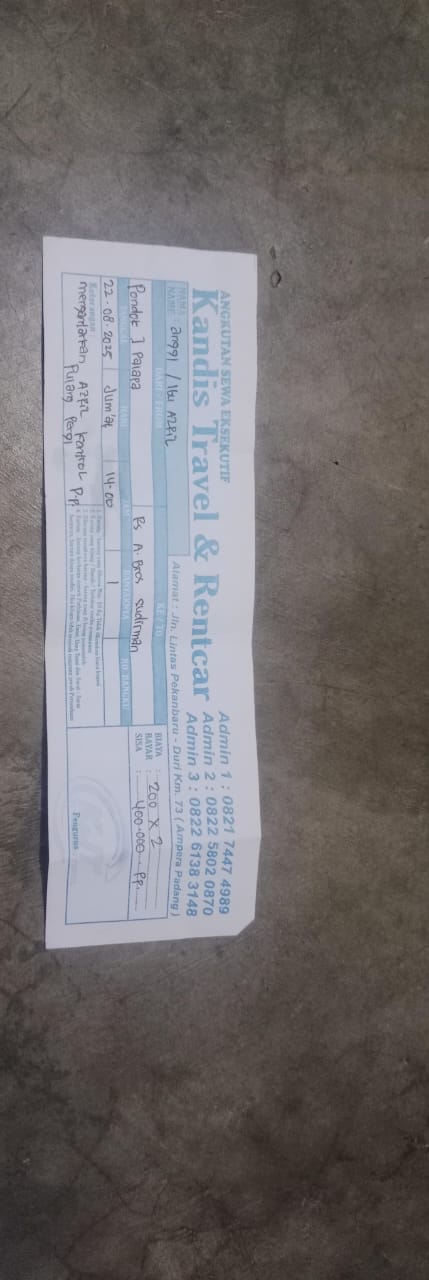 ANGKUTAN SEWA EKSEKUTIF
Kandis Travel & Rentcar
Admin 1 : 0821 7447 4989
Admin 2 : 0822 5802 0870
Admin 3 : 0822 6138 3148
Alamat : Jln. Lintas Pekanbaru - Duri Km. 73 ( Ampera Padang )
NAMA
NAME : anggi / Ibu Azril
DARI / FROM
KE / TO
Pondok 1 Palapa
RS A. Bros Sudirman
NO BANGKU
22.08.2025 Jum'at 14.00 1
BIAYA : 200 x 2
BAYAR :
SISA : 400.000 PP.
Keterangan :
mengantarkan Azril kontrol P.p
Pulang Pergi
Pengurus